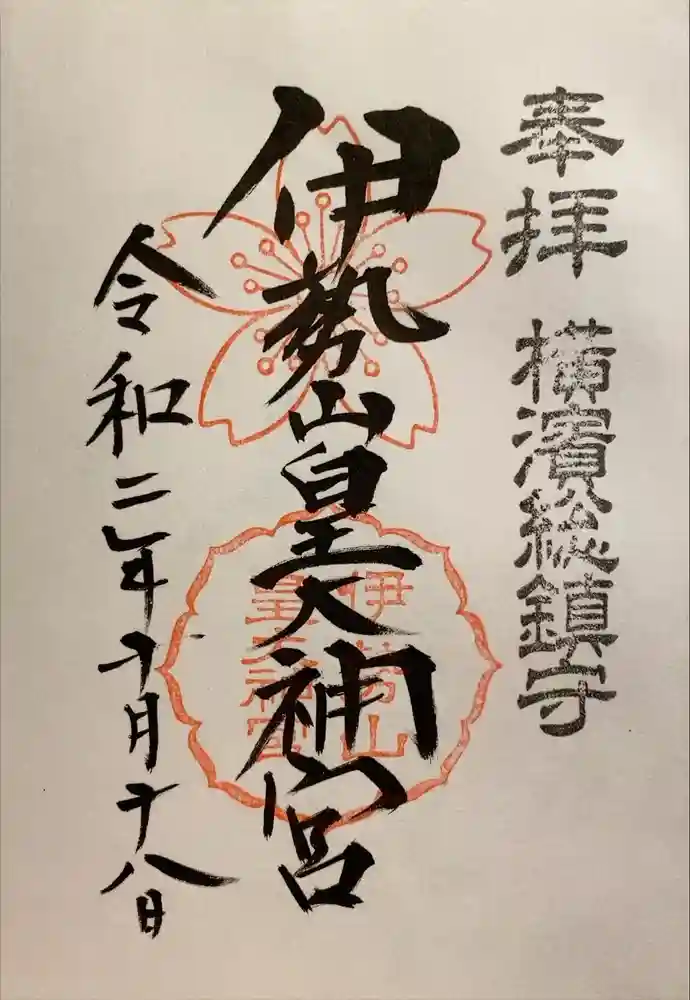 奉拝 横濱総鎮守
伊勢山皇大神宮
伊勢山
皇大神宮
令和二年十月十八日